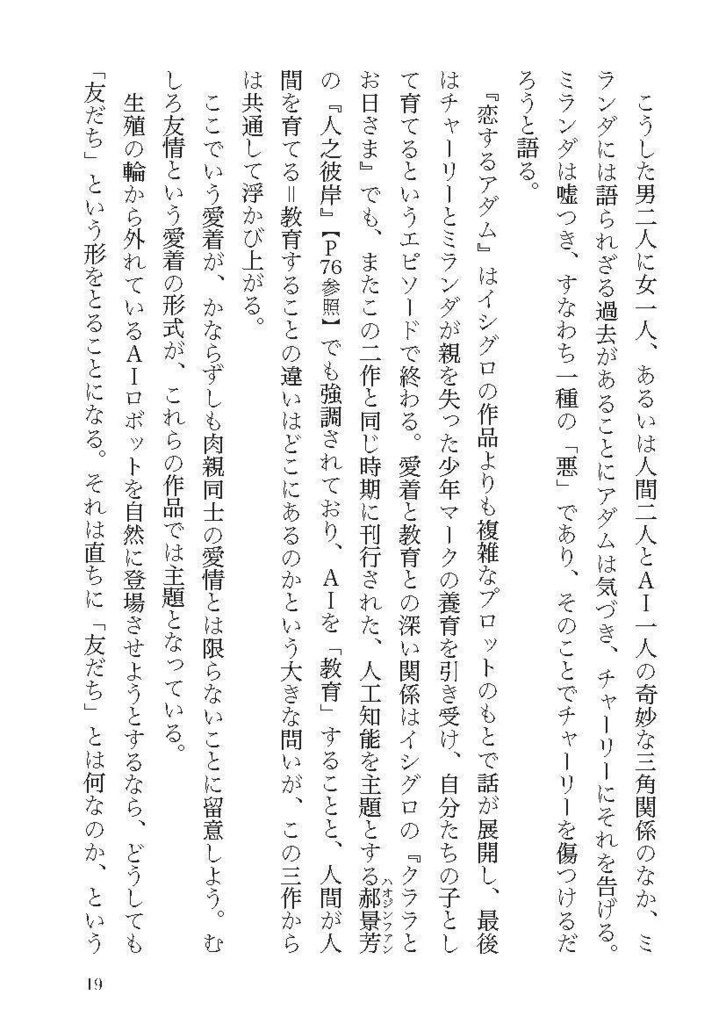 こうした男二人に女一人、あるいは人間二人とAI一人の奇妙な三角関係のなか、ミ
ランダには語られざる過去があることにアダムは気づき、チャーリーにそれを告げる。
ミランダは嘘つき、すなわち一種の「悪」であり、そのことでチャーリーを傷つけるだ
ろうと語る。
『恋するアダム』はイシグロの作品よりも複雑なプロットのもとで話が展開し、最後
はチャーリーとミランダが親を失った少年マークの養育を引き受け、自分たちの子とし
て育てるというエピソードで終わる。愛着と教育との深い関係はイシグロの『クララと
お日さま』でも、またこの二作と同じ時期に刊行された、人工知能を主題とする郝景芳
ハオジンファン
の『人之彼岸』【P76参照】でも強調されており、AIを「教育」することと、人間が人
間を育てる＝教育することの違いはどこにあるのかという大きな問いが、この三作から
は共通して浮かび上がる。
ここでいう愛着が、かならずしも肉親同士の愛情とは限らないことに留意しよう。む
しろ友情という愛着の形式が、これらの作品では主題となっている。
生殖の輪から外れているAIロボットを自然に登場させようとするなら、どうしても
「友だち」という形をとることになる。それは直ちに「友だち」とは何なのか、という
19